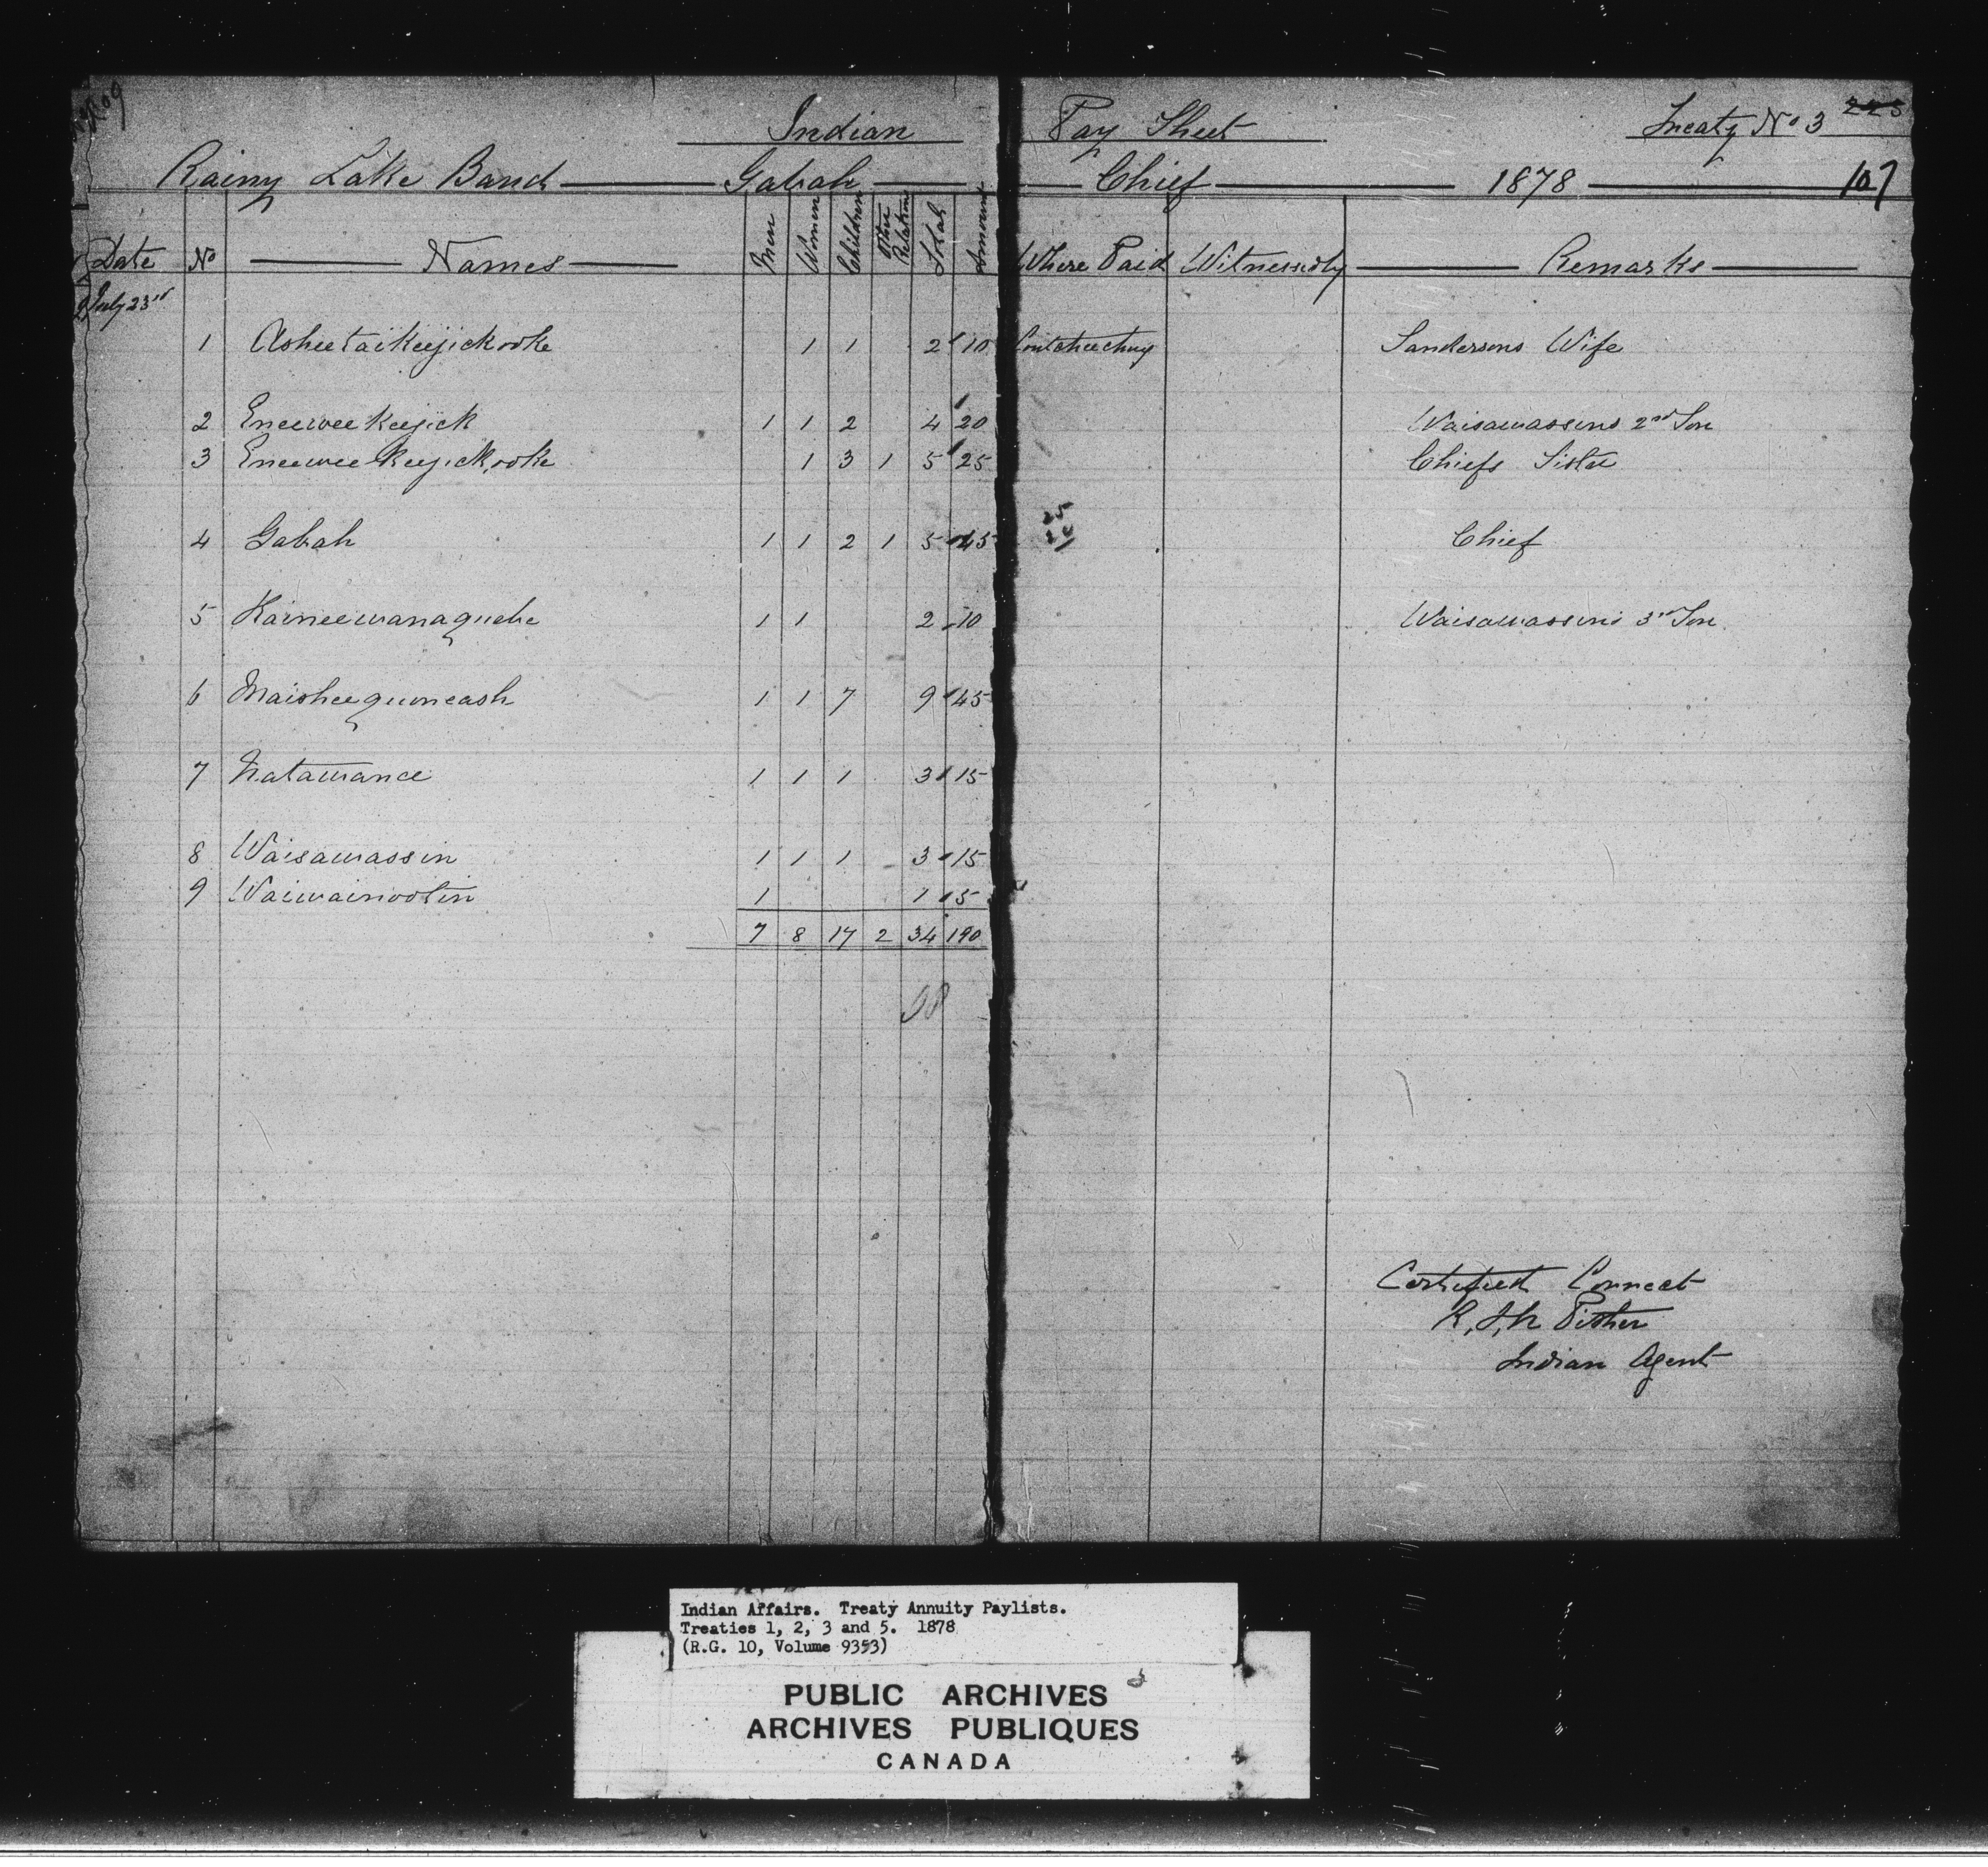 Indian Pay Sheet Treaty No 3 223
Rainy Lake Band Gabah Chief 1878 107
Date No Names Men Women Children Other Relations Total Amount Where Paid Witnessed by Remarks
July 23rd
1 Asheetaikeejickooke 1 1 2 10 Coutcheeching Sandersons Wife
2 Eneeweekeejick 1 1 2 4 20 Waisawassins 2nd Son
3 Eneeweekeejickooke 1 3 1 5 25 Chiefs Sister
4 Gabah 1 1 2 1 5 45 Chief
5 Kaineewanaquebe 1 1 2 10 Waisawassins 3rd Son
6 Maisheequoneash 1 1 7 9 45
7 Natawance 1 1 1 3 15
8 Waisawassin 1 1 1 3 15
9 Waiwainootin 1 1 5
7 8 17 2 34 190
Certified Correct
R, J, N Pither
Indian Agent
Indian Affairs. Treaty Annuity Paylists.
Treaties 1, 2, 3 and 5. 1878
(R.G. 10, Volume 9353)
PUBLIC ARCHIVES
ARCHIVES PUBLIQUES
CANADA